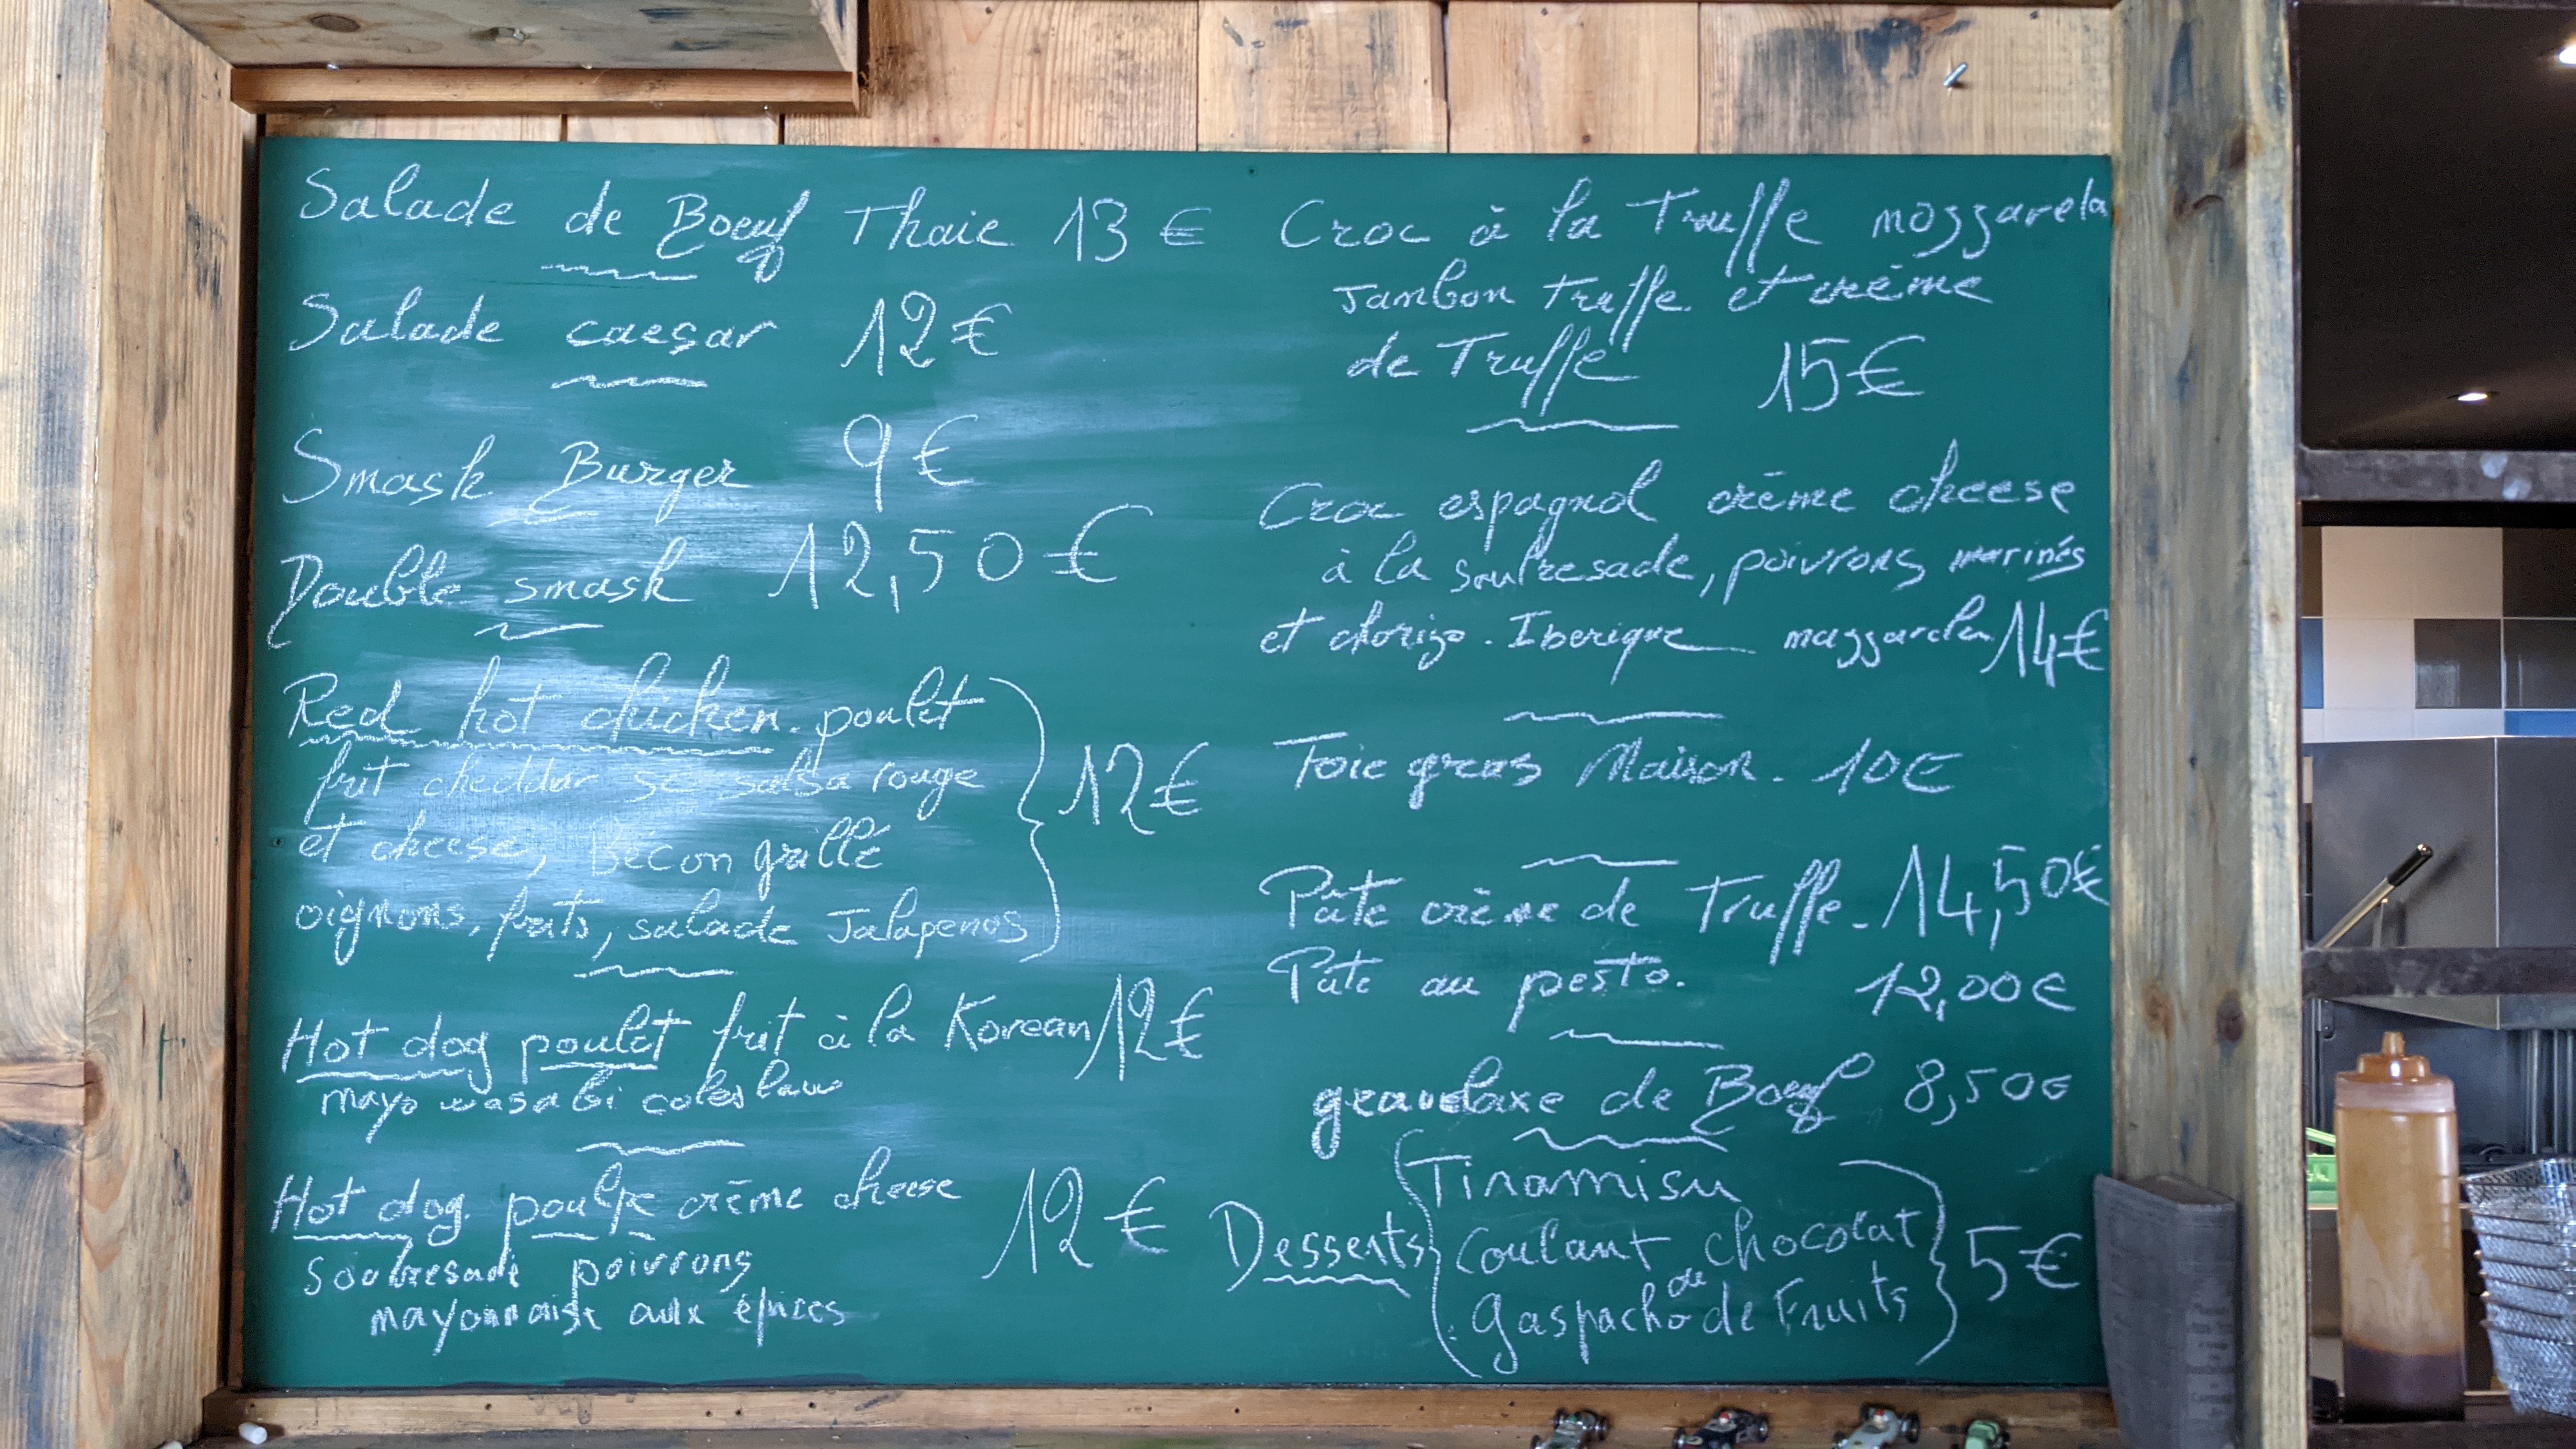 Salade de Boeuf Thaie 13 €
Salade caesar 12 €
Smash Burger 9 €
Double smash 12,50 €
Red hot chicken. poulet
frit cheddar se salsa rouge
et cheese, Bécon grillé
oignons, frits, salade Jalapenos
12 €
Hot dog poulet frit à la Korean 12 €
mayo wasabi coleslaw
Hot dog. poulpe crème cheese
soubresade poivrons
mayonnaise aux épices
12 €
Croc à la Truffe mozzarela
Jambon truffe et crème
de Truffe 15 €
Croc espagnol crème cheese
à la soubresade, poivrons marinés
et chorizo. Iberique mozzarela 14 €
Foie gras Maison. 10 €
Pâte crème de Truffe - 14,50 €
Pâte au pesto. 12,00 €
de Boeuf 8,50 €
Desserts
Tiramisu
Coulant chocolat
gaspacho de Fruits
5 €